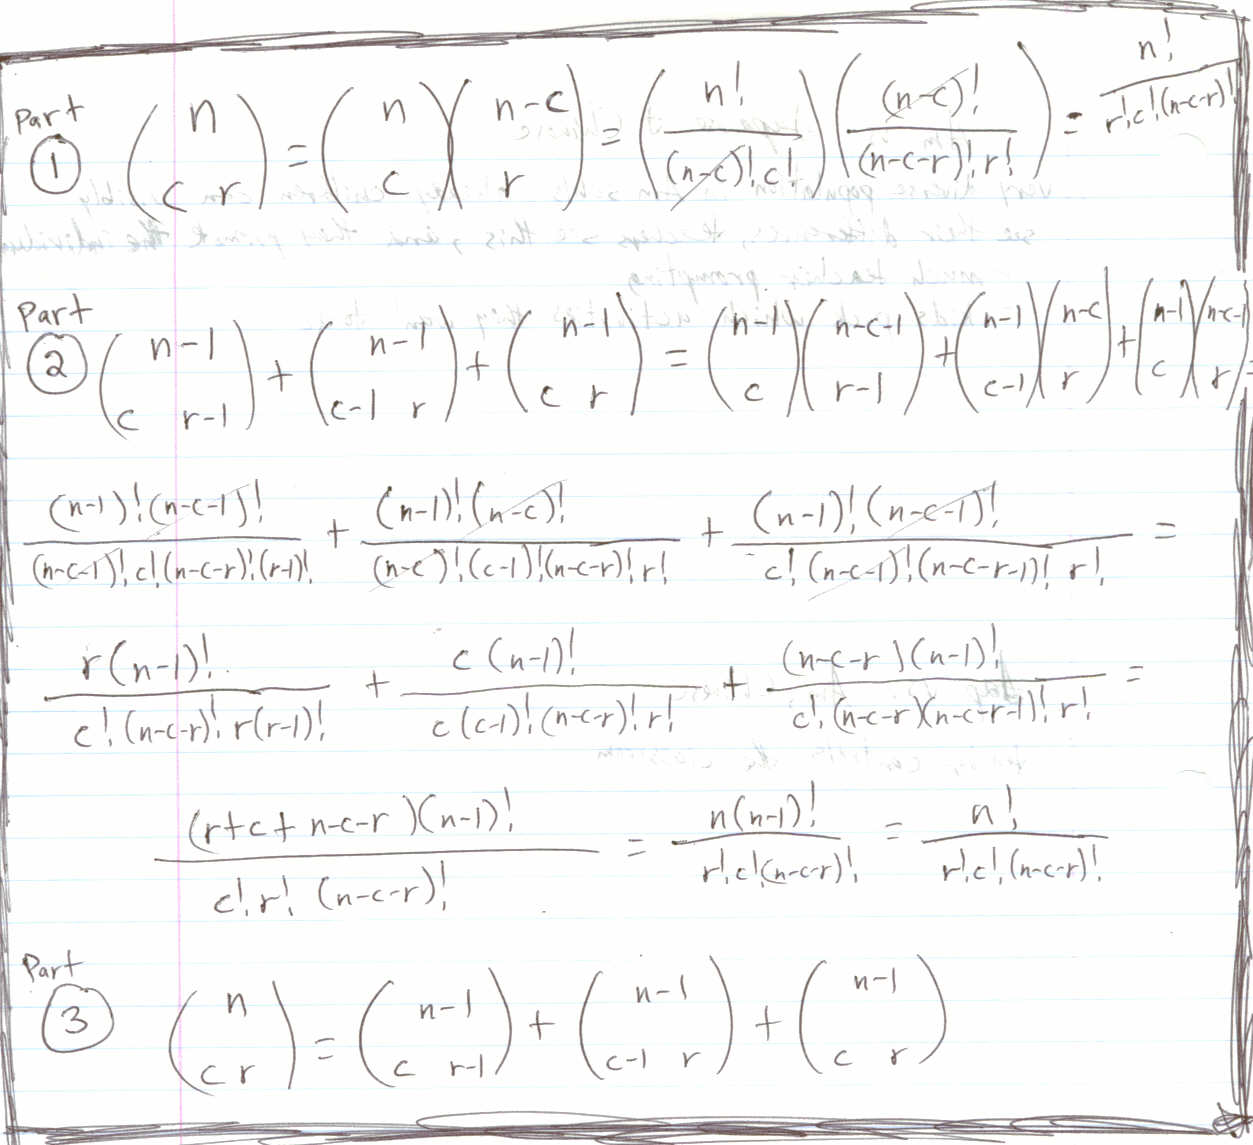 Part ① (n / c r) = (n / c)(n-c / r) = (n! / (n-c)! c!)((n-c)! / (n-c-r)! r!) = n! / r! c! (n-c-r)!
Part ② (n-1 / c r-1) + (n-1 / c-1 r) + (n-1 / c r) = (n-1 / c)(n-c-1 / r-1) + (n-1 / c-1)(n-c / r) + (n-1 / c)(n-c-1 / r) =
(n-1)! (n-c-1)! / (n-c-1)! c! (n-c-r)! (r-1)! + (n-1)! (n-c)! / (n-c)! (c-1)! (n-c-r)! r! + (n-1)! (n-c-1)! / c! (n-c-1)! (n-c-r-1)! r! =
r(n-1)! / c! (n-c-r)! r(r-1)! + c(n-1)! / c(c-1)! (n-c-r)! r! + (n-c-r)(n-1)! / c! (n-c-r)(n-c-r-1)! r! =
(r+c+n-c-r)(n-1)! / c! r! (n-c-r)! = n(n-1)! / r! c! (n-c-r)! = n! / r! c! (n-c-r)!
Part ③ (n / c r) = (n-1 / c r-1) + (n-1 / c-1 r) + (n-1 / c r)